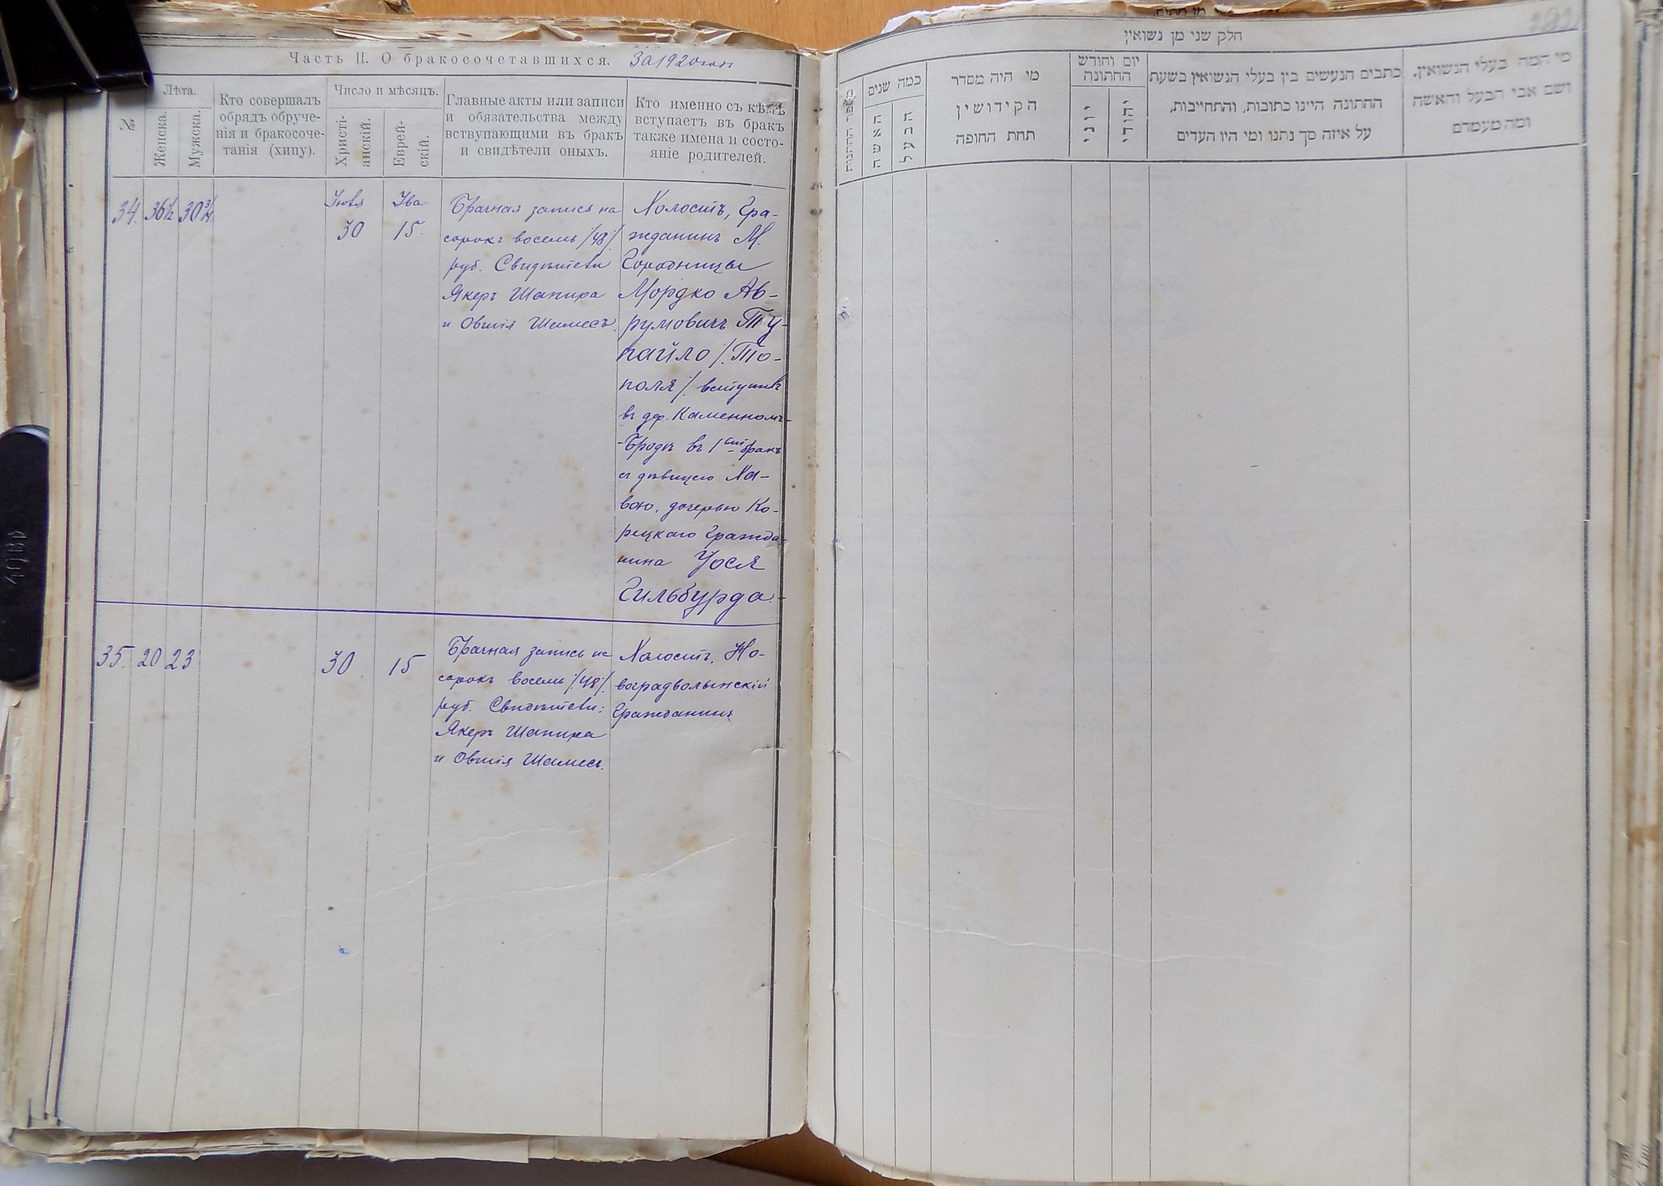 Часть II. О бракосочетавшихся. За 1920 годъ
№
Лѣта.
Женска.
Мужска.
Кто совершалъ
обрядъ обруче-
нія и бракосоче-
танія (хипу).
Число и мѣсяцъ.
Христі-
анскій.
Еврей-
скій.
Главные акты или записи
и обязательства между
вступающими въ бракъ
и свидѣтели оныхъ.
Кто именно съ кѣмъ
вступаетъ въ бракъ
также имена и состо-
яніе родителей.
34. 36½ 30¾
30 15.
Брачная запись на
сорокъ восемь /48/
руб. Свидѣтели
Якеръ Шапира
и Овшія Шамесъ.
Холостъ, Гра-
жданинъ М.
Городницы
Мордко Ав-
румовичъ Ту-
пайло /То-
поля/ вступилъ
въ дер. Каменномъ-
Бродѣ въ 1ый бракъ
съ дѣвицею Ха-
вою, дочерью Ко-
рецкаго Гражда-
нина Уося
Гильбурда.
35. 20 23
30 15
Брачная запись на
сорокъ восемь /48/
руб. Свидѣтели:
Якеръ Шапира
и Овшія Шамесъ.
Холостъ, Но-
воградволынскій
Гражданинъ
חלק שני מן נשואין
כמה שנים
האשה
הבעל
מי היה מסדר
הקידושין
תחת החופה
יום וחודש
החתונה
יוני
יהודי
כתבים הנעשים בין בעלי הנשואין בשעת
החתונה היינו כתובות, והתחייבות,
על איזה סך נתנו ומי היו העדים
מי המה בעלי הנשואין,
ושם אבי הבעל והאשה
ומה מעמדם